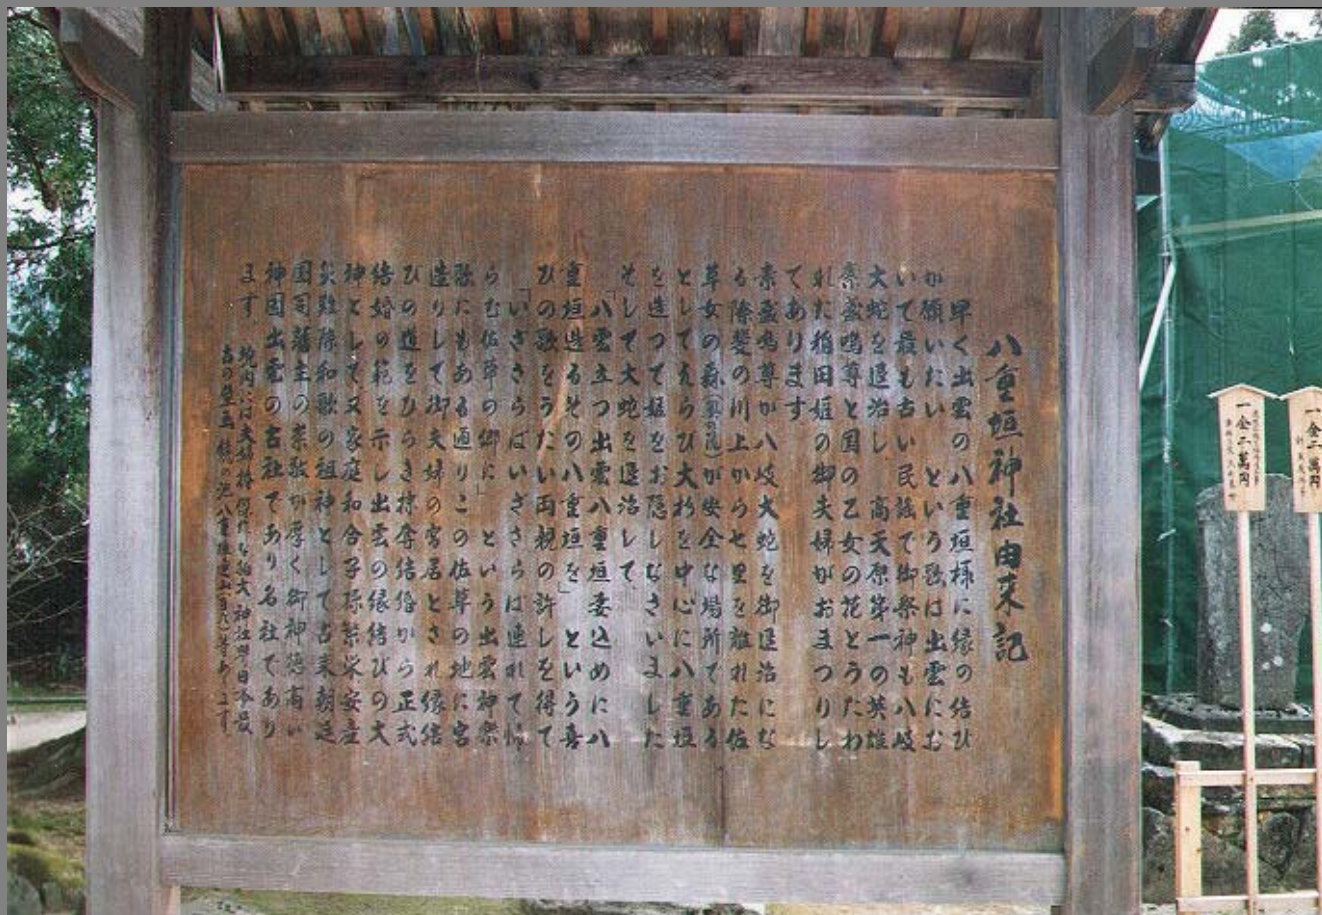 八重垣神社由来記
早く出雲の八重垣様に縁の結び
が願いたい という歌は出雲にお
いて最も古い民謡で御祭神も八岐
大蛇を退治し、高天原第一の英雄
素盞嗚尊と国の乙女の花とうたわ
れた稲田姫の御夫婦がおまつりし
てあります
素盞嗚尊が八岐大蛇を御退治にな
る際斐の川上から七里を離れた佐
草女の森(奥の院)が安全な場所である
としてえらび大杉を中心に八重垣
を造って姫をお隠しなさいました
そして大蛇を退治して、
「八雲立つ出雲八重垣妻込めに八
重垣造るその八重垣を」という喜
びの歌をうたい両親の許しを得て
「いざさらばいざさらば連れて帰
らむ佐草の郷に」という出雲神楽
歌にもある通りこの佐草の地に宮
造りして御夫婦の宮居とされ縁結
びの道をひらき掠奪結婚から正式
結婚の範を示し出雲の縁結びの大
神として又家庭和合子孫繁栄安産
災難除和歌の祖神として古来朝廷
国司藩主の崇敬が厚く御神徳高い
神国出雲の古社であり名社であり
ます。
境内には夫婦椿 神社 日本最
古の壁画 鏡の池八重垣連山 等あります
一金二萬円
一金二萬円